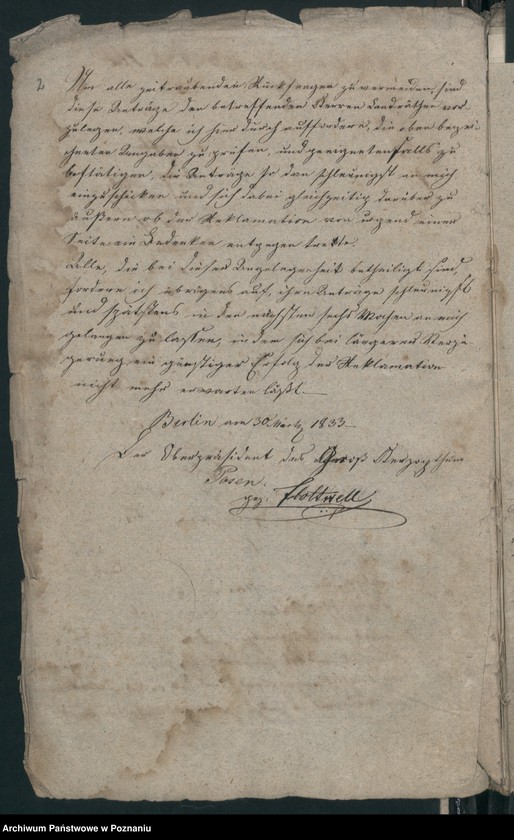 2
Um alle zeitraubenden Rückfragen zu vermeiden, sind
diese Anträge den betreffenden Herren Landräthen vor-
zulegen, welche ich hierdurch auffordere, die oben bezei-
chneten Angaben zu prüfen, und geeignetenfalls zu
bestätigen, die Anträge so dann schleunigst an mich
einzuschicken und sich dabei gleichzeitig darüber zu
äußern ob der Reklamation von irgend einer
Seite ein Bedenken entgegen trete.
Alle, die bei dieser Angelegenheit betheiligt sind,
fordere ich übrigens auf, ihre Anträge schleunigst
und spätstens in den nächsten sechs Wochen an mich
gelangen zu lassen, indem sich bei längerer Verzö-
gerung ein günstiger Erfolg der Reklamation
nicht mehr erwarten läßt.
Berlin am 30 März 1833
Der Oberpräsident des Groß Herzogthum
Posen.
gez. Flottwell
Archiwum Państwowe w Poznaniu